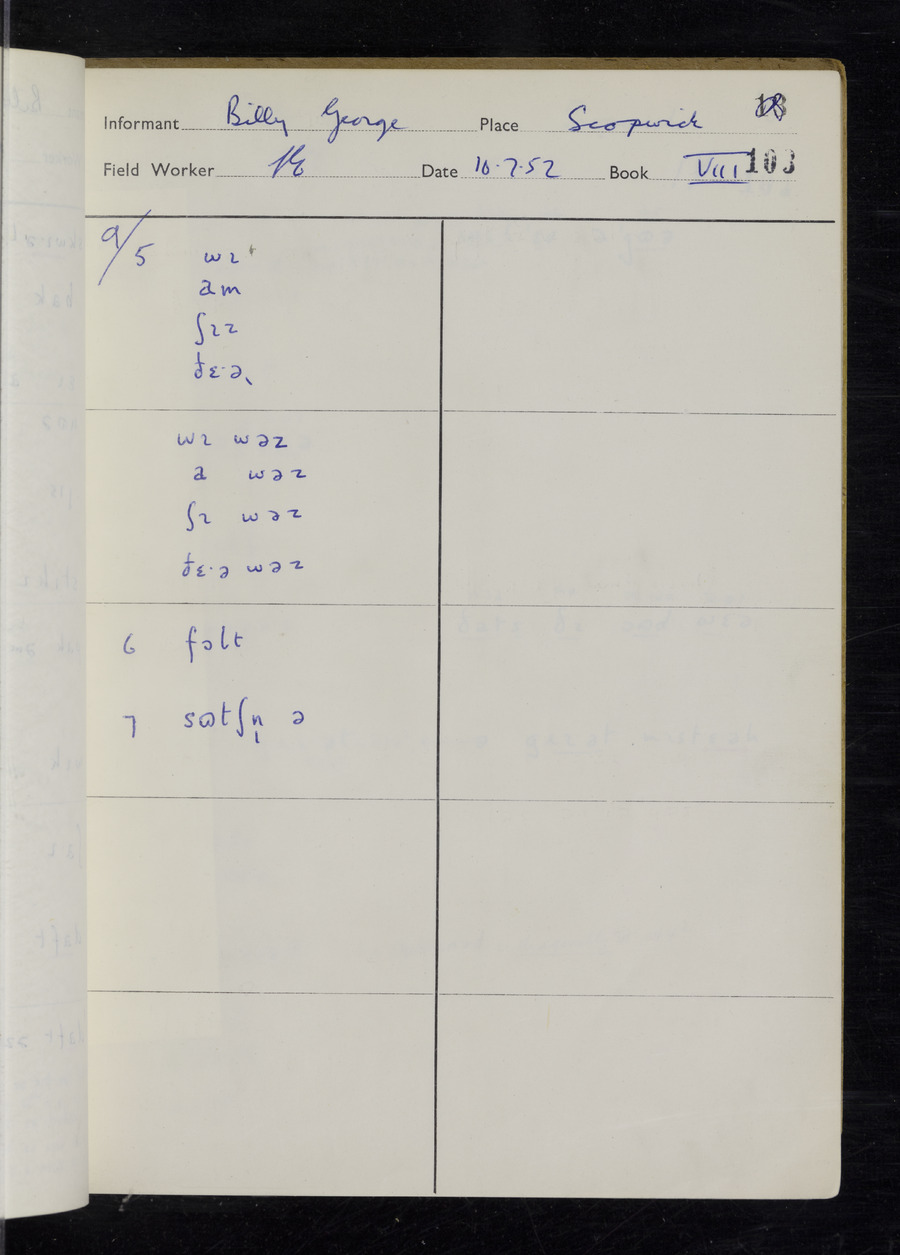 Informant Billy George Place Scopwick
Field Worker Date 10·7·52 Book VIII 103
9/5 wɪ
am
ʃɪz
ðɛ·ə
wɪ wəz
a wəz
ʃɪ wəz
ðɛ·ə wəz
6 fɔlt
7 sɷtʃn̩ ə